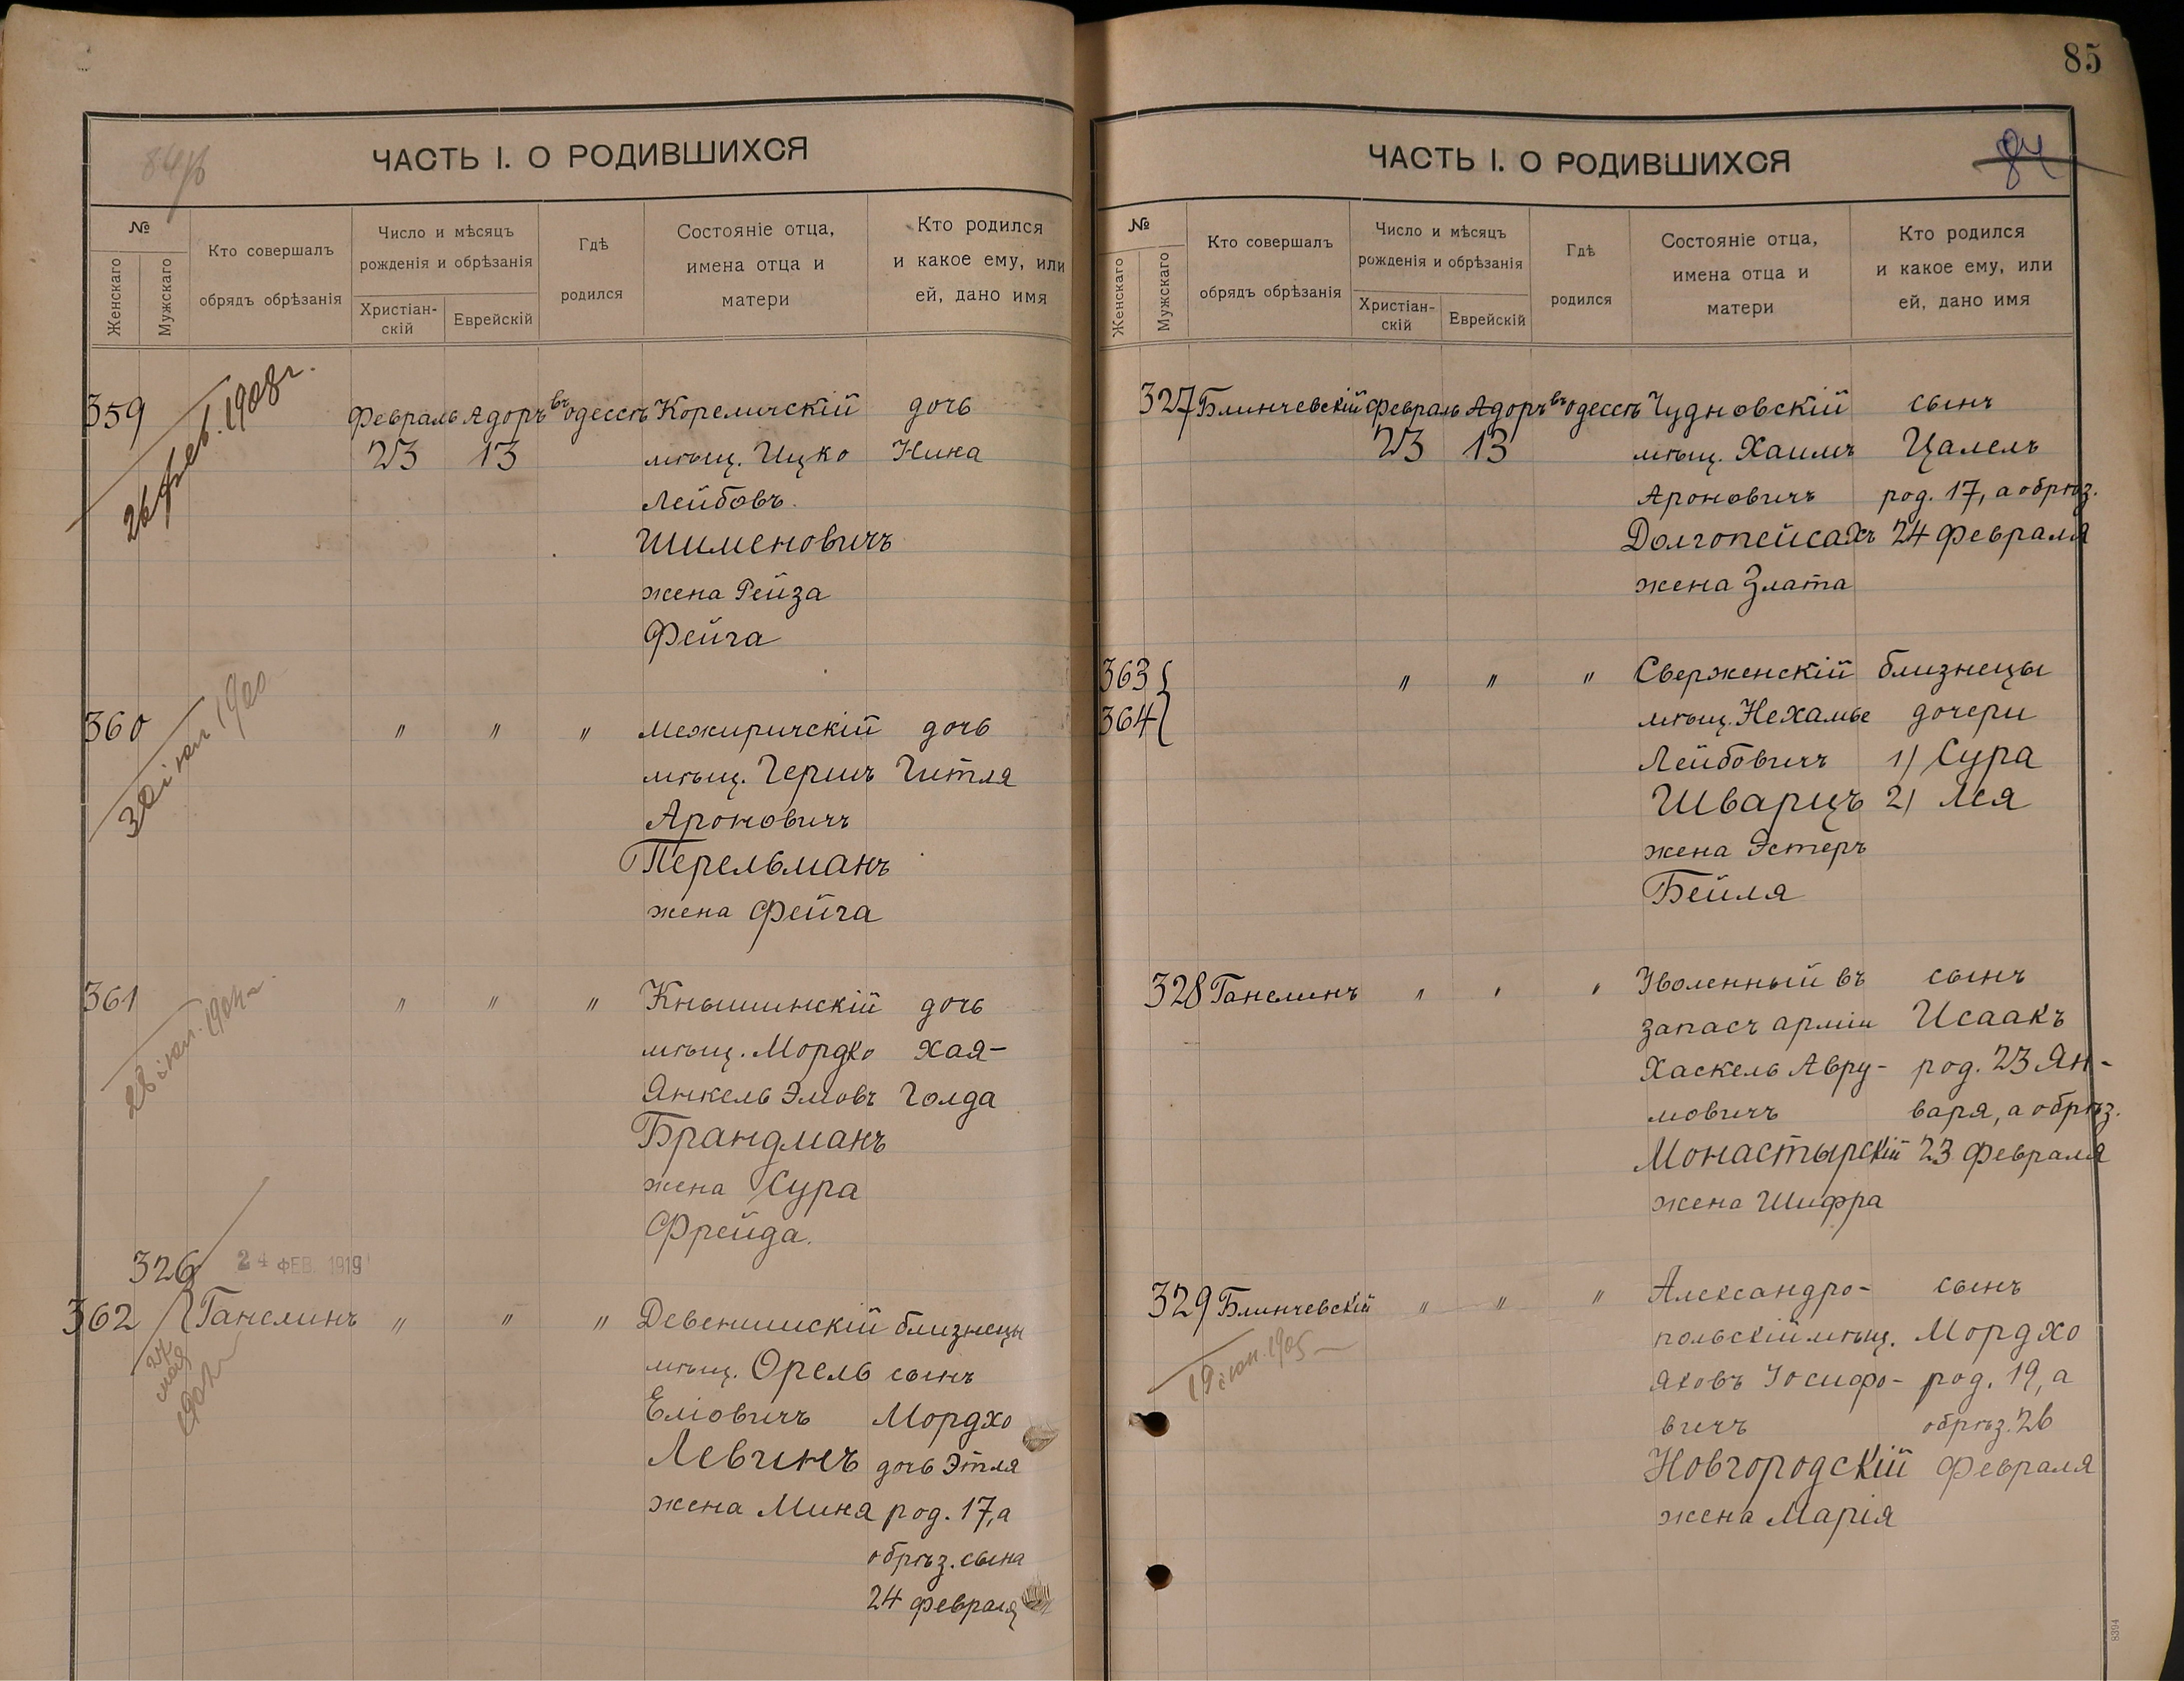 85
ЧАСТЬ I. О РОДИВШИХСЯ
№
Женскаго
Мужскаго
Кто совершалъ
обрядъ обрѣзанія
Число и мѣсяцъ
рожденія и обрѣзанія
Христіан-
скій
Еврейскій
Гдѣ
родился
Состояніе отца,
имена отца и
матери
Кто родился
и какое ему, или
ей, дано имя
359 Февраль Адоръ въ Одессѣ Кореличскій дочь
26 фев. 1908 г.
23 13 мѣщ. Ицко Нина
Лейбовъ.
Шименовичъ
жена Рейза
Фейга
360 " " " Межиричскій дочь
мѣщ. Гершъ Гитля
Ароновичъ
Перельманъ
жена Фейга
361 " " " Кнышинскій дочь
мѣщ. Мордко Хая-
Янкель Эмовъ Голда
Брандманъ
жена Сура
Фрейда.
326 24 ФЕВ. 1919
362 Ганелинъ " " " Девенишскій близнецы
мая
мѣщ. Орель сынъ
Еліовичъ Мордхо
Левинъ дочь Этля
жена Мина род. 17, а
обрѣз. сына
24 февраля
ЧАСТЬ I. О РОДИВШИХСЯ
84
№
Женскаго
Мужскаго
Кто совершалъ
обрядъ обрѣзанія
Число и мѣсяцъ
рожденія и обрѣзанія
Христіан-
скій
Еврейскій
Гдѣ
родился
Состояніе отца,
имена отца и
матери
Кто родился
и какое ему, или
ей, дано имя
327 Блинчевскій Февраль Адоръ въ Одессѣ Чудновскій сынъ
23 13 мѣщ. Хаимъ Цалель
Ароновичъ род. 17, а обрѣз.
Долгопейсахъ 24 февраля
жена Злата
363 " " " Сверженскій близнецы
364 мѣщ. Нехамье дочери
Лейбовичъ 1) Сура
Шварцъ 2) Лея
жена Эстеръ
Бейля
328 Ганелинъ " " " Уволенный въ сынъ
запасъ арміи Исаакъ
Хаскель Авру- род. 23 Ян-
мовичъ варя, а обрѣз.
Монастырскій 23 февраля
жена Шифра
329 Блинчевскій " " " Александро- сынъ
польскій мѣщ. Мордхо
Яковъ Іосифо- род. 19, а
вичъ обрѣз. 26
Новгородскій февраля
жена Марія
8394